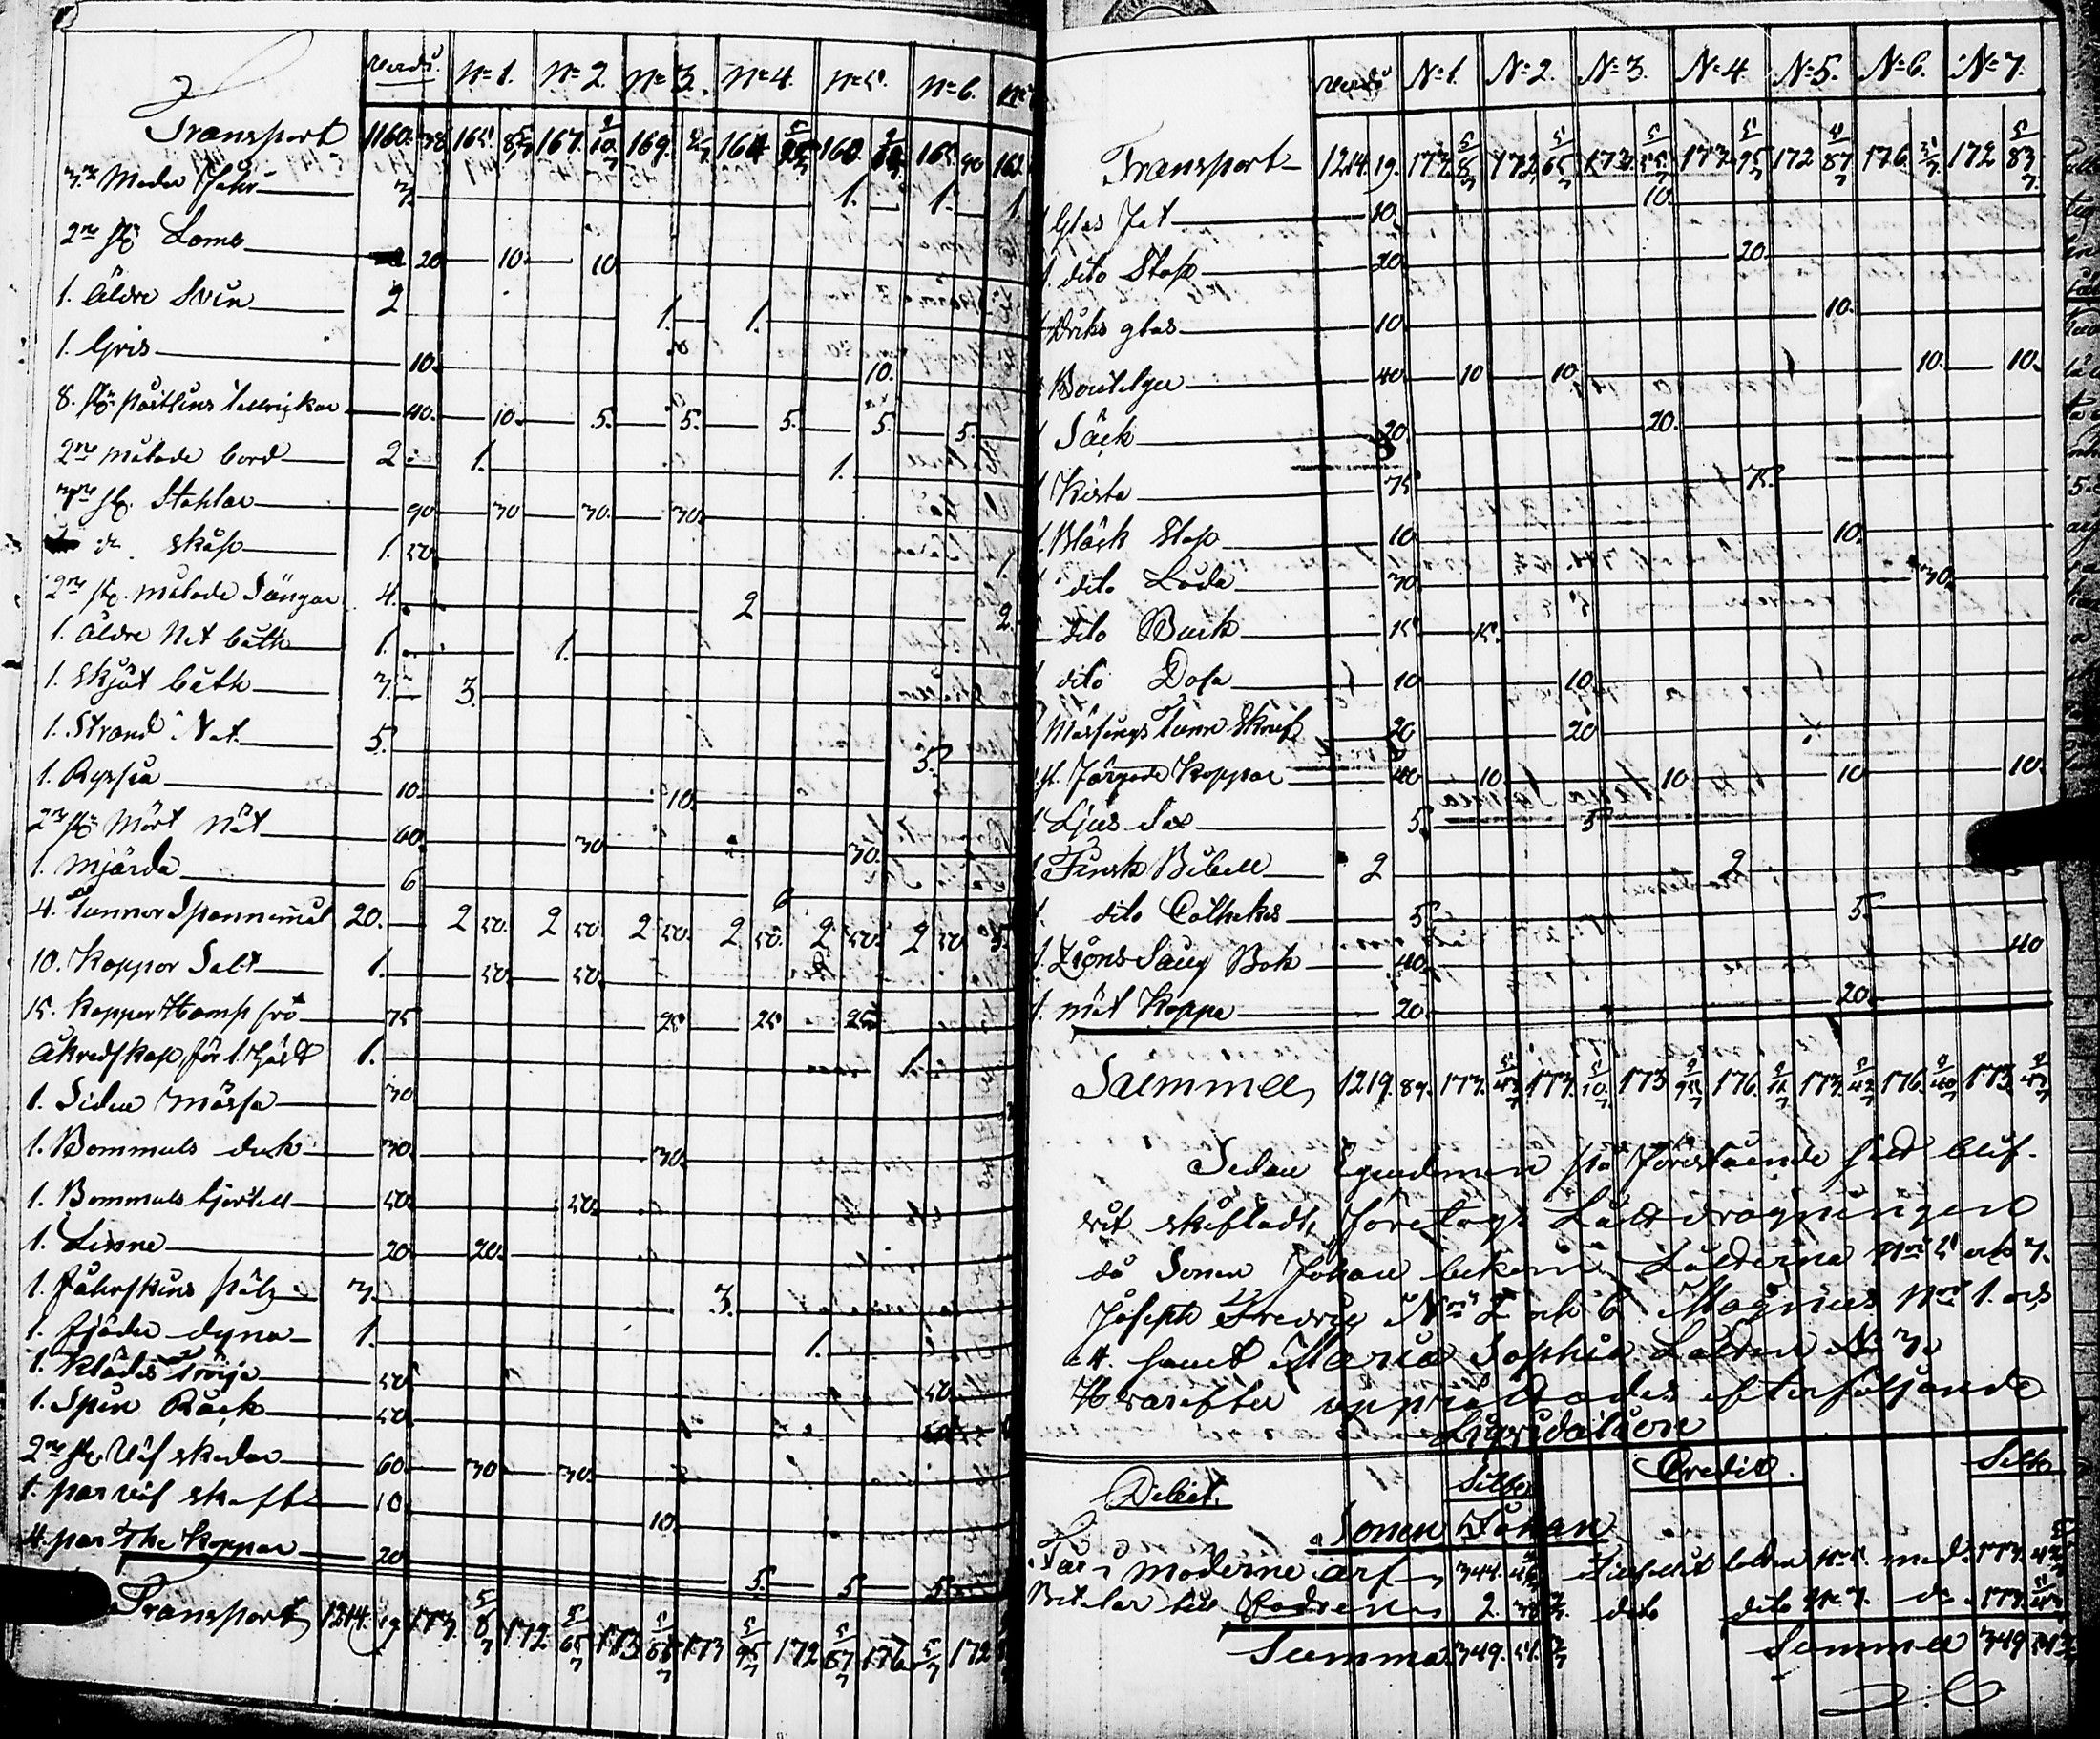 Värde. No 1. No 2. No 3. No 4. No 5. No 6. No
Transport 1160. 38 165. 167. 10 169. 164 160 165. 90 162
3ne Moder Fåhr 3. 1. 1. 1
2ne st Lamb 20 10 10
1. Äldre Svin 2 1. 1.
1. Gris 10. 10.
8. st Postlins tallrickar 40. 10. 5. 5. 5. 5. 5.
2ne målade bord 2. 1. 1.
3ne st. Stohlar 90 30 30. 30
d. skåp 1. 50. 1.
2ne st. målade Sängar 4. 2 2.
1. äldre Not båth 1. 1.
1. Skjöt båth 3. 3.
1. Strand Not 5. 5.
1. Ryssia 10. 10.
2ne st Mört Nät 60. 30 30.
1. Mjärda 6 6
4. Tunnor Spannemål 20. 2 50. 2 50. 2 50. 2 50. 2 50. 2 50 5.
10. Kappor Salt 1. 50. 50.
15. Kappor Hamp frö 75 25 25 25
Åkredskap för 1. Häst 1. 1.
1. Siden Mössa 30
1. Bommuls duk 30. 30.
1. Bommuls kjortell 50. 50.
1. Linne 20 20.
1. Fåhrskins Pälz 3. 3.
1. fjäder dyna 1. 1.
1. Klädes Tröija 50 50.
1. Spin Råck 50.
2ne st Väf skedar 60. 30 30.
1. par väf skaft 10. 10.
4. par The Koppar 20 5. 5. 5.
Transport 1214. 19 173. 8/7 172. 65/7 173 55/7 173 95/7 172 87/7 176 5/7 172
Värde No 1. No 2. No 3. No 4. No 5. No 6. No 7.
Transport 1214. 19. 173. 8/7 172. 65/7 173. 55/7 173. 95/7 172 87/7 176 5/7 172 83/7
1 Glas Fat 10. 10.
1. dito Stop 20 20.
Driks glas 10 10.
Bouteljer 40 10 10 10. 10.
1 Säck 20 20.
1 Kista 75 75.
1. Bläck Stop 10 10.
1 dito Låda 30 30.
dito Burk 15 15.
1 dito Dosa 10 10.
Mässings Tunn Skruf 20 20
st. Färgade Koppar 40 10. 10. 10 10.
1 Ljus Sax 5. 5
1 Finsk Bibell 2 2
1. dito Cathekes 5. 5.
1. Zions Sång Bok 40. 40
1. mät Kappa 20 20.
Summa 1219. 89. 173. 173. 10 173 95 176. 173. 176. 173.
Sedan Egendomen på förestående sätt blif-
vit skiftadt, företogs Låttdragningen
då Sonen Johan bekom Låtterna No 5 och 7.
Joseph Fredric No 2 och 6 Magnus No 1. och
4. samt Maria Sophia Låtten No 3.
Hvarefter upprättades efterföljande
Liqvidation
Debet. Silfver Credit. Silfver
Sonen Johan
Får i Möderne arf 347. med 173.
Betalar till 2. dito dito No 7. do. 173.
Summa 349. 51. Summa 349 51